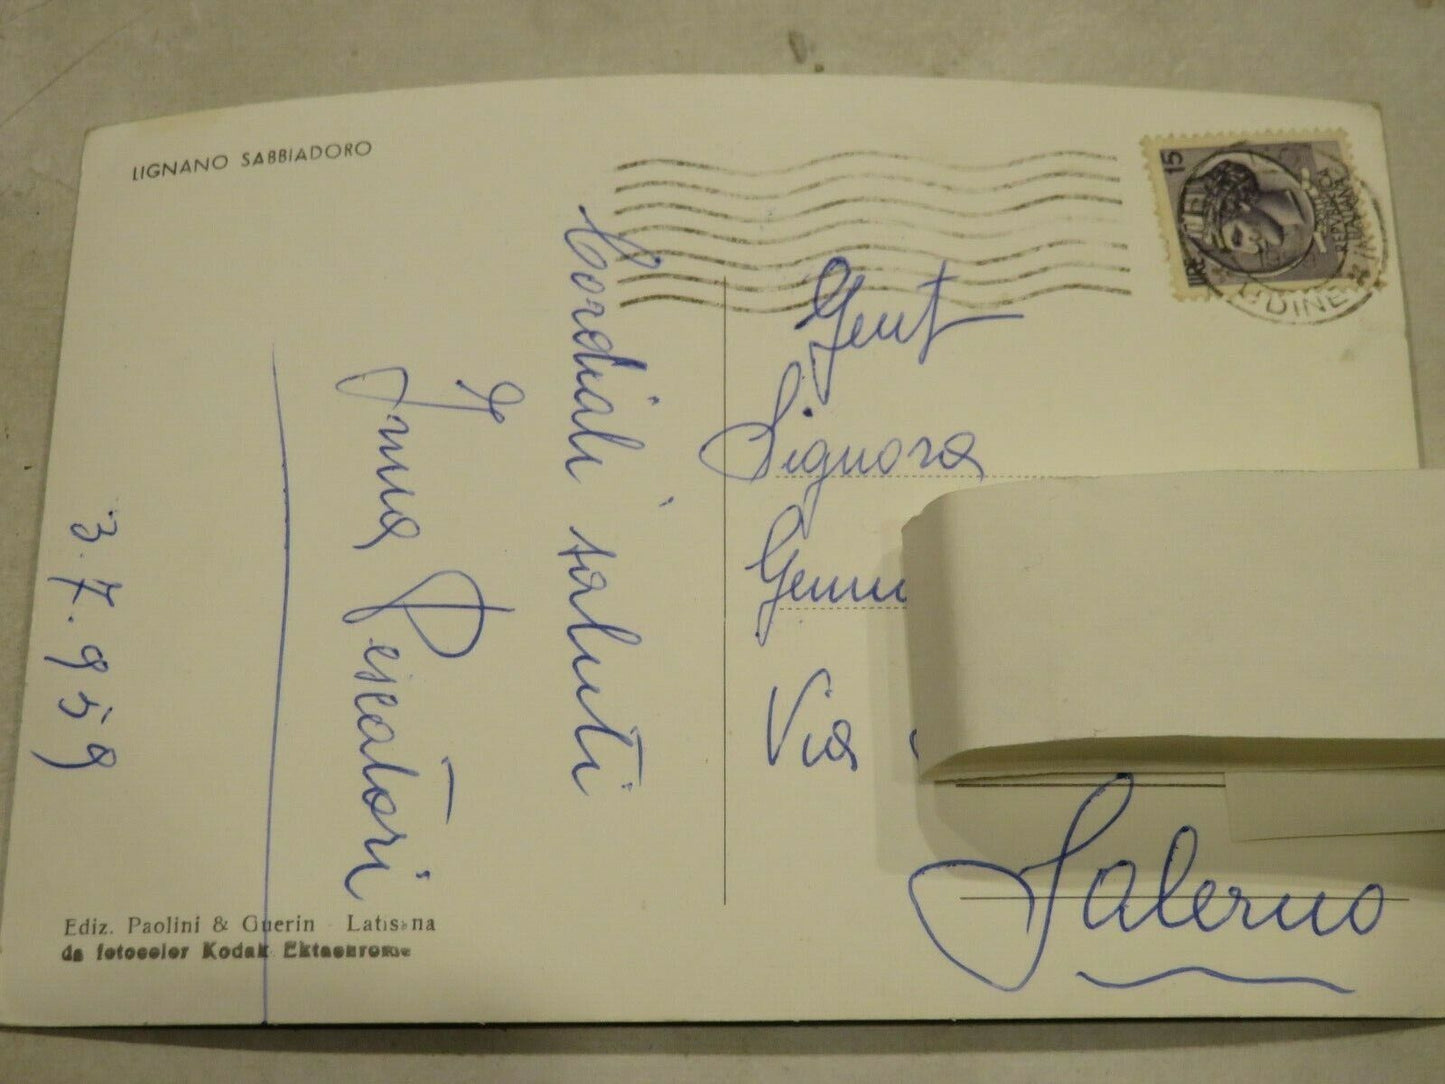 LIGNANO SABBIADORO
Cordiali saluti
Irma Pescatori
3.7.959
Ediz. Paolini & Guerin - Latisana
da fotocolor Kodak Ektachrome
15
LIRE
REPUBBLICA
ITALIANA
UDINE
Gent
Signora
Via
Salerno